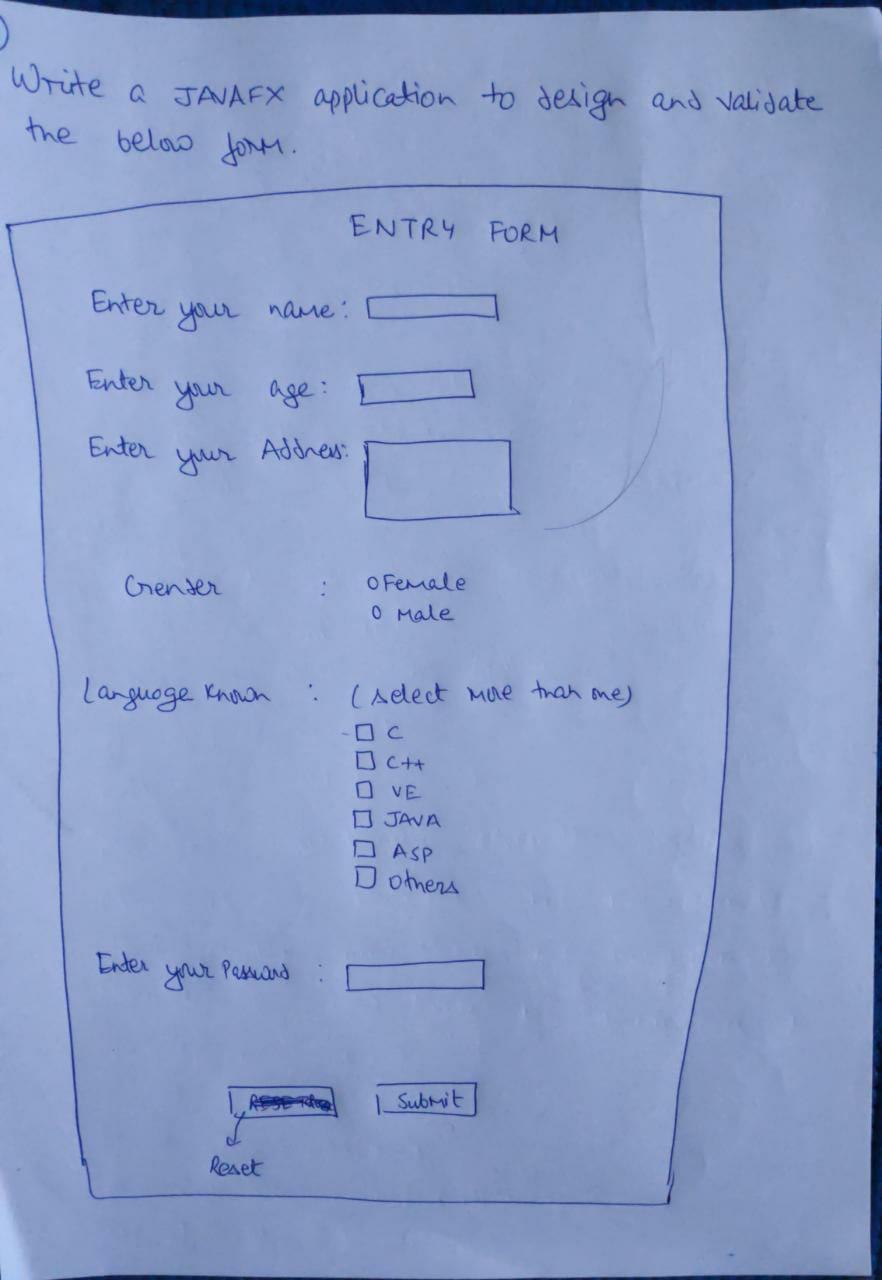 Write a JAVAFX application to design and validate
the below form.
ENTRY FORM
Enter your name:
Enter your age:
Enter your Address:
Gender : Female
Male
Language known : (select more than one)
C
C++
VE
JAVA
ASP
Others
Enter your Password :
Submit
Reset